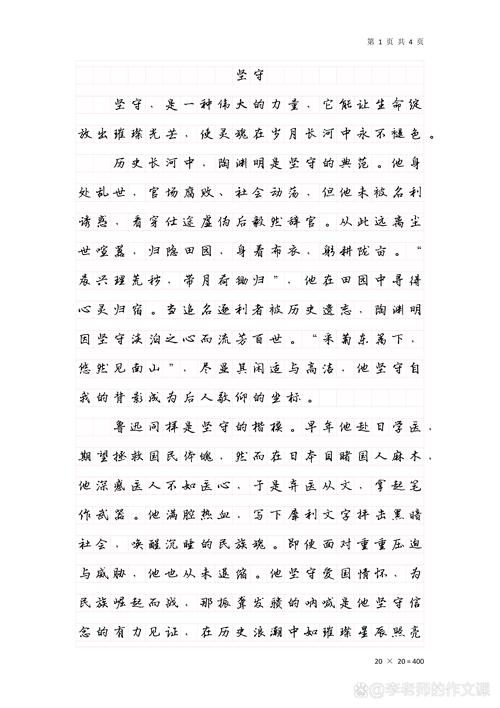 第 1 页 共 4 页
坚守
坚守，是一种伟大的力量，它能让生命绽
放出璀璨光芒，使灵魂在岁月长河中永不褪色。
历史长河中，陶渊明是坚守的典范。他身
处乱世，官场腐败、社会动荡，但他未被名利
诱惑，看穿仕途虚伪后毅然辞官。从此远离尘
世喧嚣，归隐田园，身着布衣，躬耕陇亩。“
晨兴理荒秽，带月荷锄归”，他在田园中寻得
心灵归宿。当追名逐利者被历史遗忘，陶渊明
因坚守淡泊之心而流芳百世。“采菊东篱下，
悠然见南山”，尽显其闲适与高洁，他坚守自
我的背影成为后人敬仰的坐标。
鲁迅同样是坚守的楷模。早年他赴日学医，
期望拯救国民体魄，然而在日本目睹国人麻木，
他深感医人不如医心，于是弃医从文，拿起笔
作武器。他满腔热血，写下犀利文字抨击黑暗
社会，唤醒沉睡的民族魂。即使面对重重压迫
与威胁，他也从未退缩。他坚守爱国情怀，为
民族崛起而战，那振聋发聩的呐喊是他坚守信
念的有力见证，在历史浪潮中如璀璨星辰照亮
20 × 20 = 400
@李老师的作文课